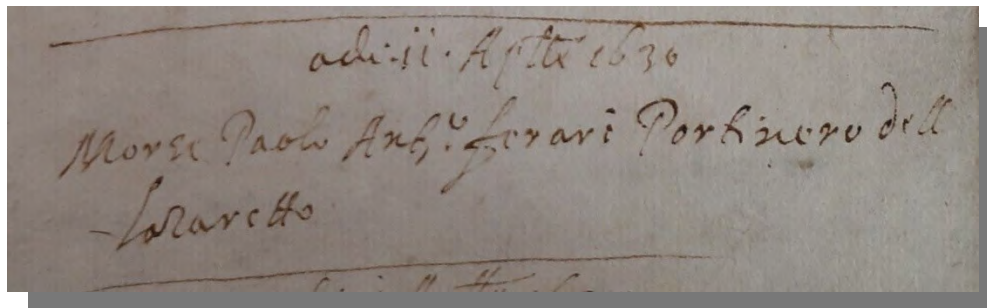 adi·ii· Aples 1630
Morse Paolo Anto. ferari Portinero dell
Lazaretto